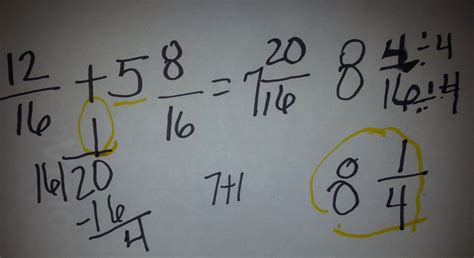 12/16 + 5 8/16 = 7 20/16 8 4÷4/16÷4
1
16)20
-16
4
7+1
8 1/4